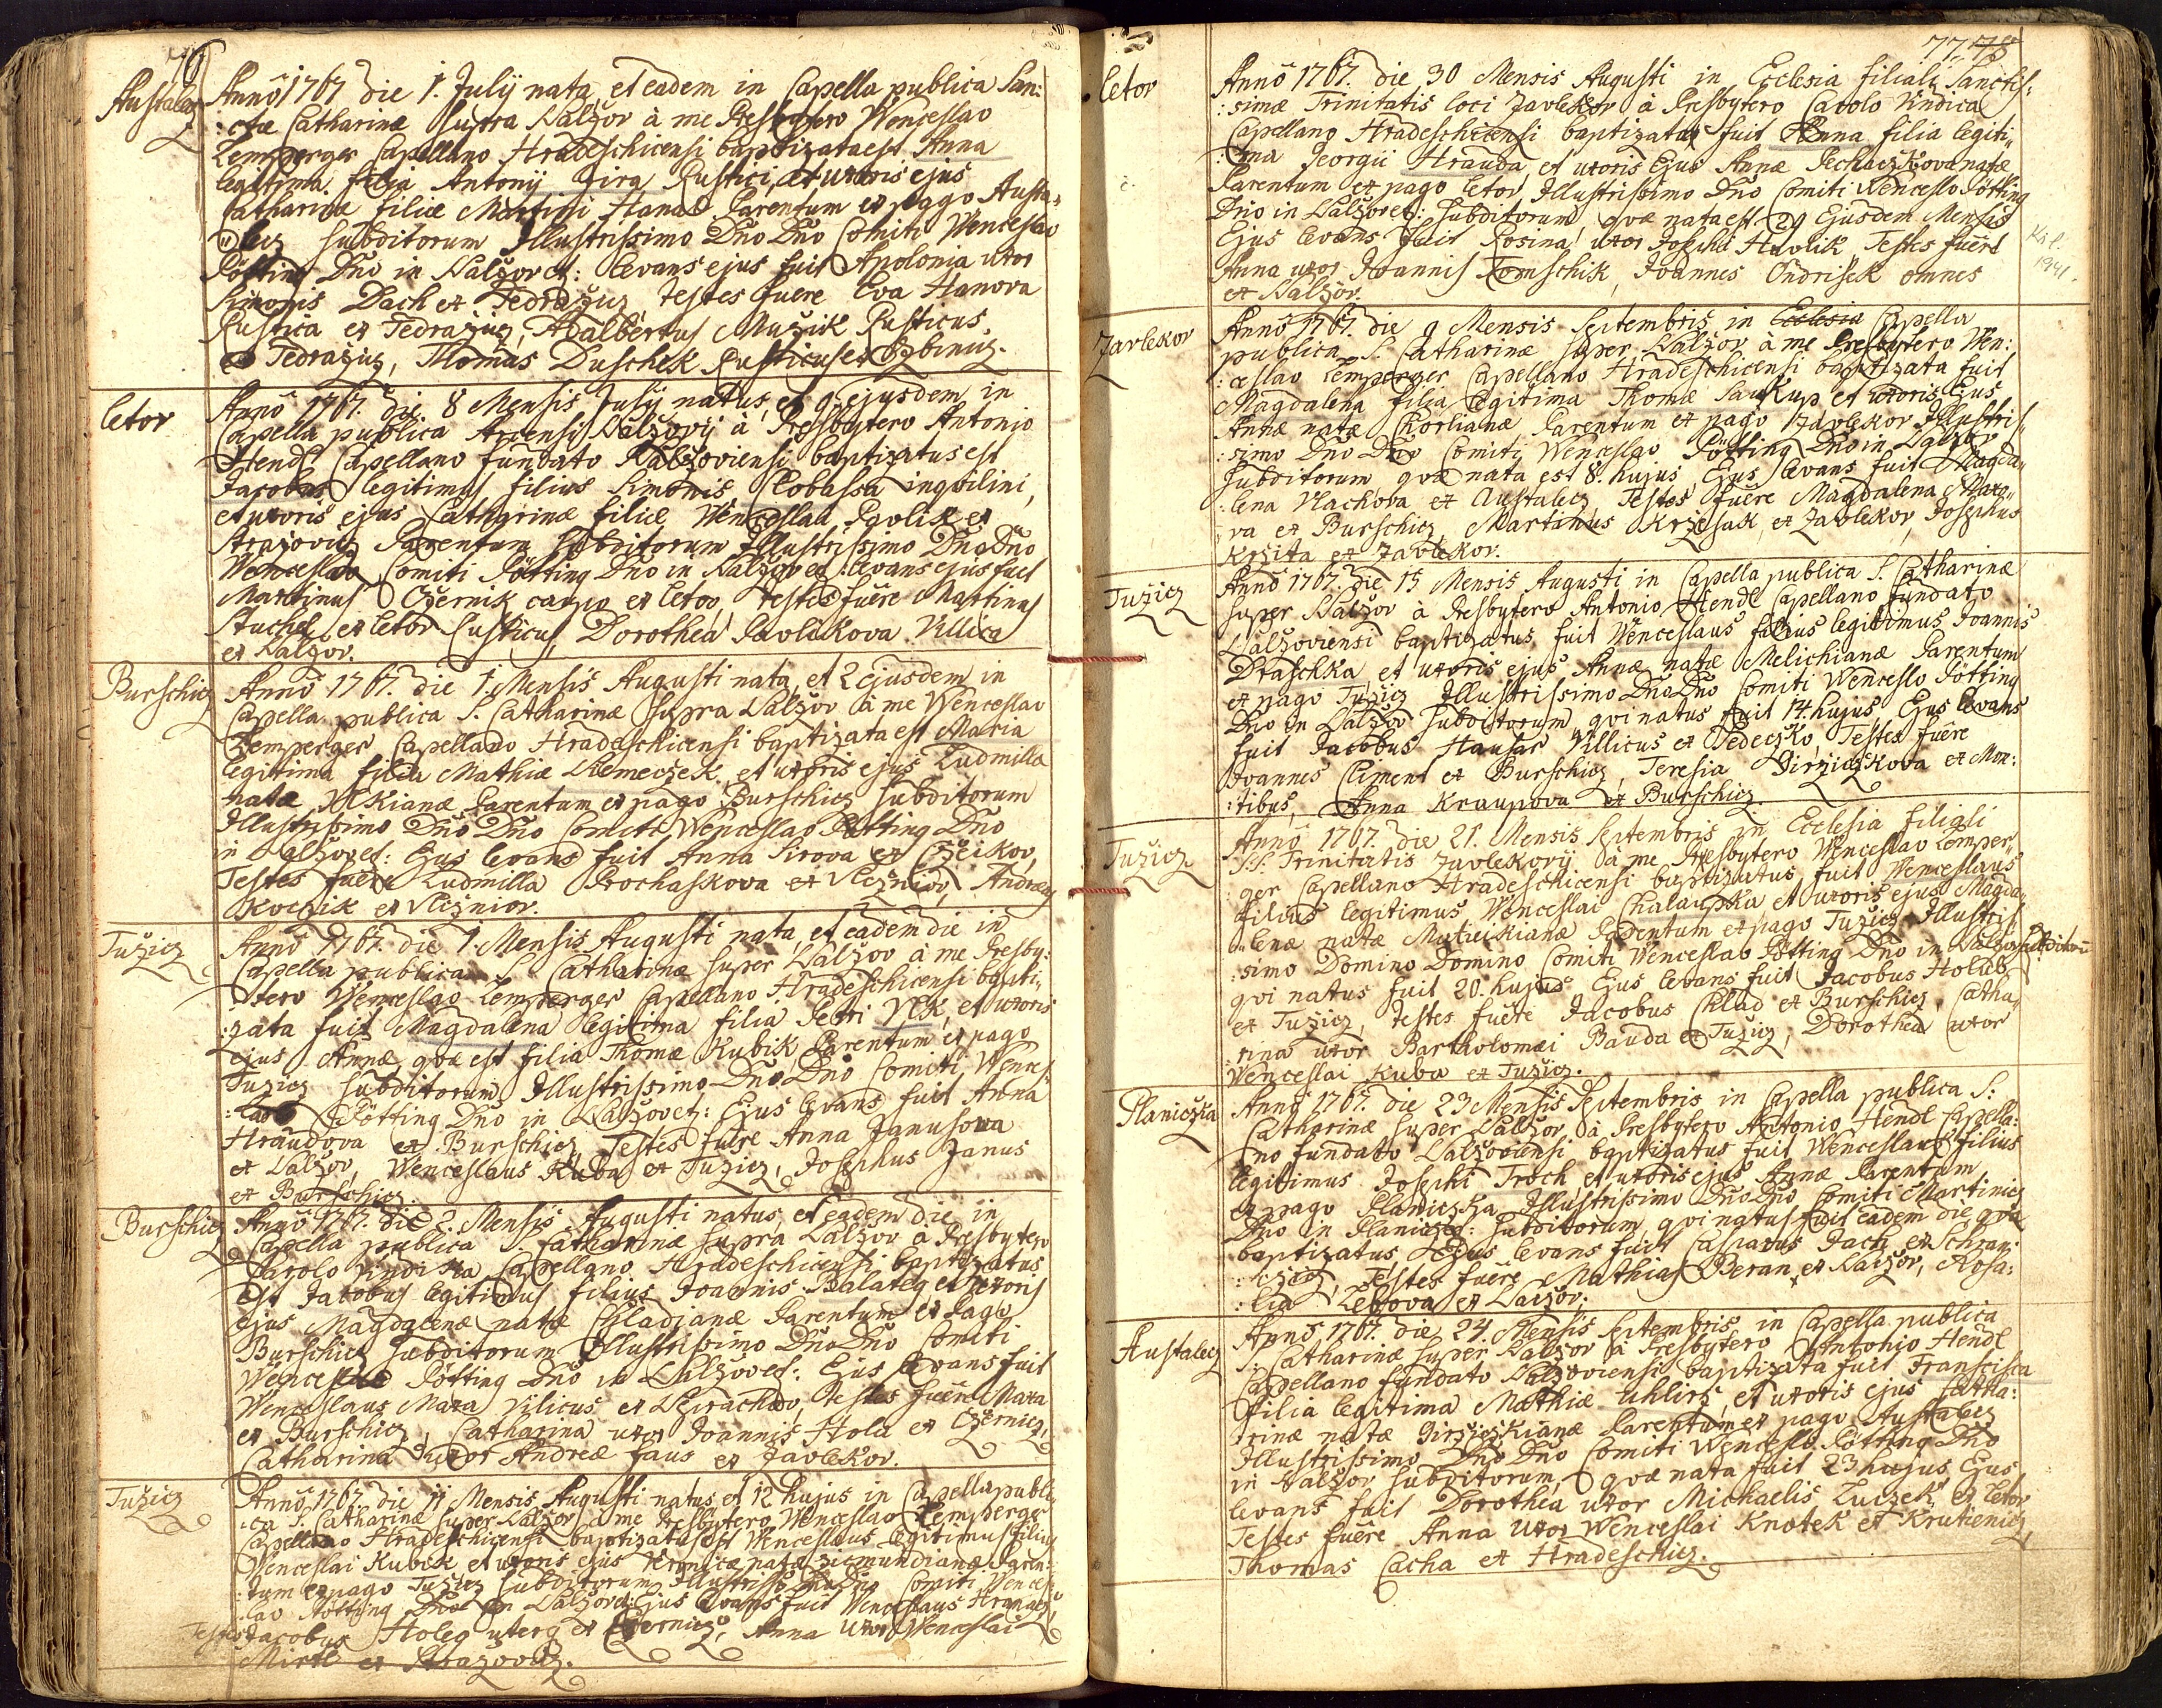 76
Austalez
Anno 1767 die 1. July nata et eadem in Capella publica San:
:ctæ Catharinæ supra Nalžov à me Presbytero Wenceslao
Lemperger Capellano Hradeschicensi baptizata est Anna
legitima filia Antonij Jira Rustici, et uxoris ejus
Catharinæ filiæ Martini Hanal Parentum ex pago Austa„
„lecz subditorum Illustrissimo Dno Dno Comiti Wenceslao
Pötting Dno in Nalžov et: levans ejus fuit Apolonia uxor
Simonis Dach ex Tedražicz, testes fuere Eva Hanova
Rustica ex Tedražicz, Adalbertus Mužik Rusticus
ex Tedražicz, Thomas Duschek Rusticus ex Zbinicz.
letov
Anno 1767. die 8 Mensis July natus, et 9 ejusdem in
Capella publica Arcensi Nalžovij à Presbytero Antonio
Hendl Capellano fundato Nalžoviensi baptizatus est
Jacobus legitimus filius Simonis Clobassa inquilini,
et uxoris ejus Catharinæ filiæ Wenceslai Pavlik ex
Strazovicz Parentum subditorum Illustrissimo Dno Dno
Wenceslao Comiti Pötting Dno in Nalžov et: levans ejus fuit
Martinus Czernik caupo ex letov, testes fuêre Martinus
Stuchel ex letov Rusticus, Dorothea Pavlikova Villica
ex Nalžov.
Burschicz
Anno 1767. die 1. Mensis Augusti nata, et 2 ejusdem in
Capella publica S. Catharinæ supra Nalžov à me Wenceslao
Lemperger Capellano Hradeschicensi baptizata est Maria
legitima filia Mathiæ Klemeczek, et uxoris ejus Ludmilla
natæ Vlkianæ Parentum ex pago Burschicz subditorum
Illustrissimo Dno Dno Comiti Wenceslao Pötting Dno
in Nalžov et: Ejus levans fuit Anna Sirova ex Czeikov,
Testes fuêre Ludmilla Prochaskova ex Vlcžniov, Andreas
Kvczik ex Vlcžniov.
Tužicz
Anno 1767. die 1 Mensis Augusti nata, et eadem die in
Capella publica S. Catharinæ super Nalžov à me Presby:
:tero Wenceslao Lemperger Capellano Hradeschicensi bapti„
:zata fuit Magdalena legitima filia Petri Vlk, et uxoris
ejus Annæ, qvæ est filia Thomæ Kubik Parentum ex pago
Tužicz subditorum Illustrissimo Dno Dno Comiti Wences
:lao Pötting Dno in Nalžov et: Ejus levans fuit Anna
Hraudova ex Burschicz, Testes fuêre Anna Janusova
ex Nalžov, Wenceslaus Kuba ex Tužicz, Josephus Janus
ex Burschicz.
Burschicz
Anno 1767. die 2. Mensis Augusti natus, et eadem die in
Capella publica S. Catharinæ supra Nalžov à Presbytero
Carolo Vindika Capellano Hradeschicensi baptizatus
est Jacobus legitimus filius Joannis Balatey et uxoris
ejus Magdalenæ natæ Chladianæ Parentum ex Pago
Burschicz subditorum Illustrissimo Dno Dno Comiti
Wenceslao Pötting Dno in Nalžov et: Ejus levans fuit
Wenceslaus Maxa Vilicus ex Neprachov, testes fuêre Maxa
ex Burschicz, Catharina uxor Joannis Hola ex Czernicz,
Catharina uxor Andreæ Faus ex Zavlekov.
Tužicz
Anno 1767. die 11 Mensis Augusti natus, et 12 hujus in Capella publi„
:ca S. Catharinæ super Nalžov à me Presbytero Wenceslao Lemperger
Capellano Hradeschicensi baptizatus est Wenceslaus legitimus filius
Wenceslai Kubik et uxoris ejus Veronicæ natæ Zicmundianæ Paren:
:tum ex pago Tužicz subditorum Illustriss: Dno Dno Comiti Wences
:lao Pötting Dno in Nalžov et: Ejus levans fuit Wenceslaus
Testes Jacobus Holeg uterq ex Czernicz, Anna uxor Wenceslai
ex Strazovicz.
77 78
letov
Anno 1767. die 30 Mensis Augusti in Ecclesia filiali Sanctis:
:simæ Trinitatis loci Zavlekov à Presbytero Carolo Vindica
Capellano Hradeschicensi baptizata fuit Anna filia legiti„
:ma Georgii Hrauda, et uxoris Ejus Annæ Pechaczkova natæ
Parentum ex pago letov, Illustrissimo Dno Comiti Wenceslo Pötting
Dno in Nalžov et: subditorum, qvæ nata est 29 Ejusdem Mensis
Ejus levans fuit Rosina uxor Josephi Havlik, Testes fuêre
Anna uxor Joannis Tomschik, Joannes Ondrisek omnes
ex Nalžov.
1941.
Zavlekov
Anno 1767. die 9 Mensis Septembris in Ecclesia Capella
publica S. Catharinæ super Nalžov à me Presbytero Wen:
:ceslao Lemperger Capellano Hradeschicensi baptizata fuit
Magdalena filia legitima Thomæ Saukup et uxoris Ejus
Annæ natæ Chorlianæ Parentum ex pago Zavlekov Illustris
:simo Dno Dno Comiti Wenceslao Pötting Dno in Nalžov
subditorum, qvæ nata est 8. hujus, Ejus levans fuit Magda„
:lena Vlachova ex Austalecz Testes fuêre Magdalena Maxo„
:va ex Burschicz, Martinus Kržesak ex Zavlekov, Josephus
Kržita ex Zavlekov.
Tužicz
Anno 1767. die 15 Mensis Augusti in Capella publica S. Catharinæ
super Nalžov à Presbytero Antonio Hendl Capellano fundato
Nalžoviensi baptizatus fuit Wenceslaus filius legitimus Joannis
Draschka, et uxoris ejus Annæ natæ Melichianæ Parentum
ex pago Tužicz Illustrissimo Dno Dno Comiti Wenceslo Pötting
Dno in Nalžov subditorum, qvi natus fuit 14. hujus, Ejus levans
fuit Jacobus Hausar Villicus ex Wedeczko, Testes fuêre
Joannes Climent ex Burschicz, Teresia Jirziczkova ex Mon:
:tibus, Anna Kraupova ex Burschicz.
Tužicz
Anno 1767. die 21. Mensis Septembris in Ecclesia filiali
S.S. Trinitatis Zavlekovij à me Presbytero Wenceslao Lemper„
ger Capellano Hradeschicensi baptizatus fuit Wenceslaus
filius legitimus Wenceslai Chalaupka et uxoris ejus Magda„
„lenæ natæ Matuskianæ Parentum ex pago Tužicz Illustris
:simo Domino Domino Comiti Wenceslao Pötting Dno in Nalžov subditorũ
qvi natus fuit 20. hujus Ejus levans fuit Jacobus Holub
ex Tužicz, testes fuêre Jacobus Chlad ex Burschicz, Catha„
:rina uxor Bartholomæi Bauda ex Tužicz, Dorothea uxor
Wenceslai Kuba ex Tužicz.
Planiczka
Anno 1767. die 23 Mensis Septembris in Capella publica S:
Catharinæ super Nalžov à Presbytero Antonio Hendl Capella:
:no fundato Nalžoviensi baptizatus fuit Wenceslaus filius
legitimus Josephi Troch et uxoris ejus Annæ Parentum
ex pago Planiczka Illustrissimo Dno Dno Comiti Martinicz
Dno in Planicz et: subditorum, qvi natus fuit eadem die qva
baptizatus, Ejus levans fuit Casparus Jach ex Schwan:
Testes fuêre Mathias Beran ex Nalžov, Rosa:
:lia Lebova ex Nalžov.
Austalecz
Anno 1767. die 24. Mensis Septembris in Capella publica
S. Catharinæ super Nalžov à Presbytero Antonio Hendl
Capellano fundato Nalžoviensi baptizata fuit Franscisca
filia legitima Mathiæ Uhlirž, et uxoris ejus Catha:
:rinæ natæ Jiržiczkianæ Parentum ex pago Austalecz
Illustrissimo Dno Dno Comiti Wenceslo Pötting Dno
in Nalžov subditorum, qvæ nata fuit 23 hujus Ejus
levans fuit Dorothea uxor Michaelis Zuczek ex letov
Testes fuêre Anna uxor Wenceslai Knotek ex Krutienicz
Thomas Cacha ex Hradeschicz.